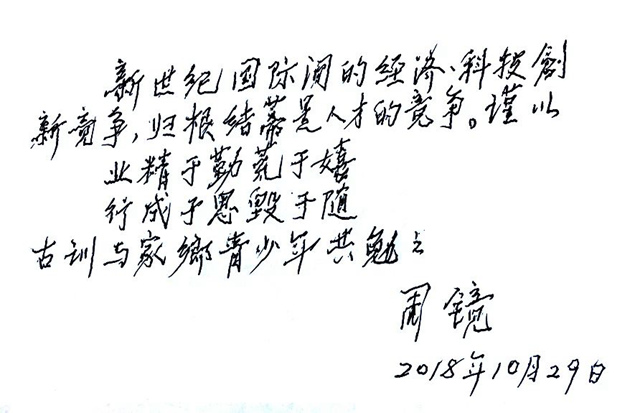 新世纪国际间的经济、科技創
新竞争，归根结蒂是人才的竞争。谨以
业精于勤荒于嬉
行成于思毁于随
古训与家鄉青少年共勉之
周镜
2018年10月29日